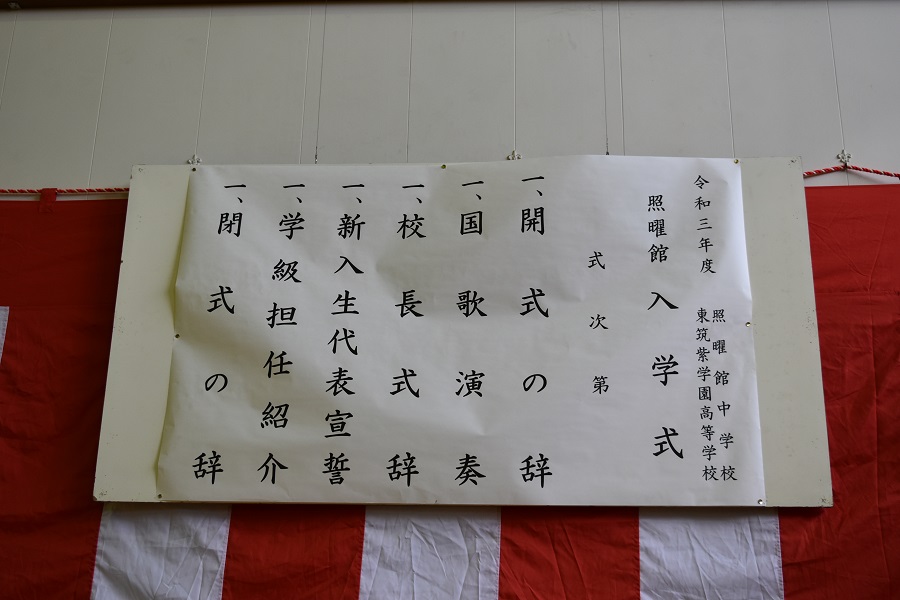 令和三年度
照曜館中学校
東筑紫学園高等学校
照曜館入学式
式次第
一、開式の辞
一、国歌演奏
一、校長式辞
一、新入生代表宣誓
一、学級担任紹介
一、閉式の辞